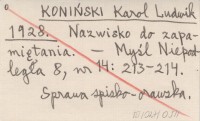 KONIŃSKI Karol Ludwik
1928. Nazwisko do zapa-
miętania. — Myśl Niepod-
legła 8, nr 14: 213-214.
Sprawa spisko-orawska.